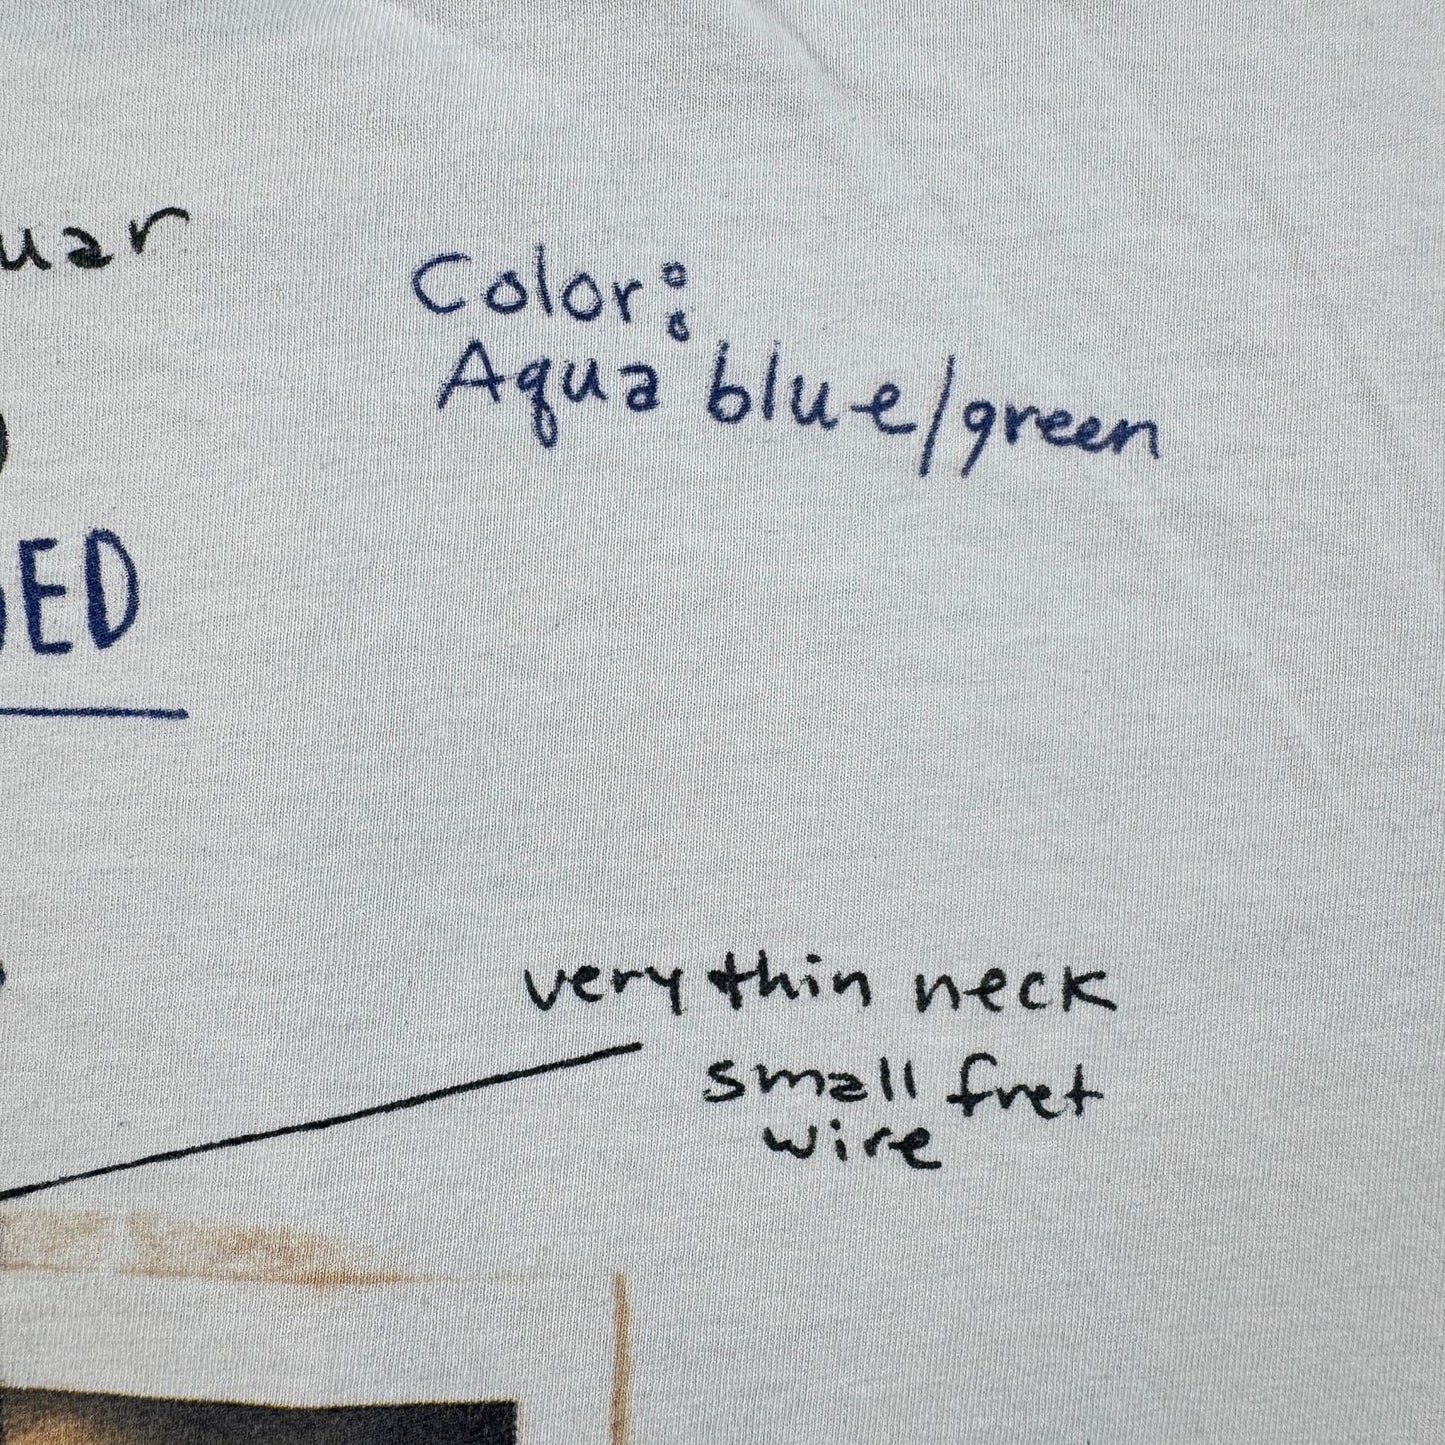 Color:
Aqua blue/green
very thin neck
small fret
wire